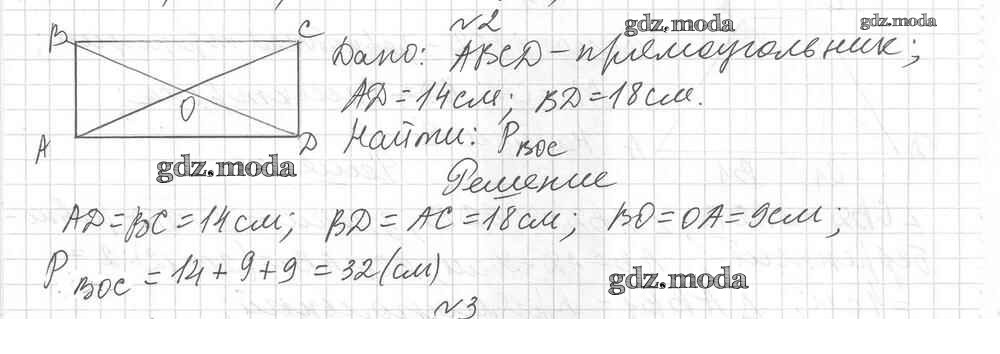 №2
gdz.moda
gdz.moda
B C
Дано: ABCD – прямоугольник;
AD = 14 см; BD = 18 см.
O
A D
Найти: P BOC
gdz.moda
Решение
AD = BC = 14 см; BD = AC = 18 см; BO = OA = 9 см;
P BOC = 14 + 9 + 9 = 32 (см)
gdz.moda
№3